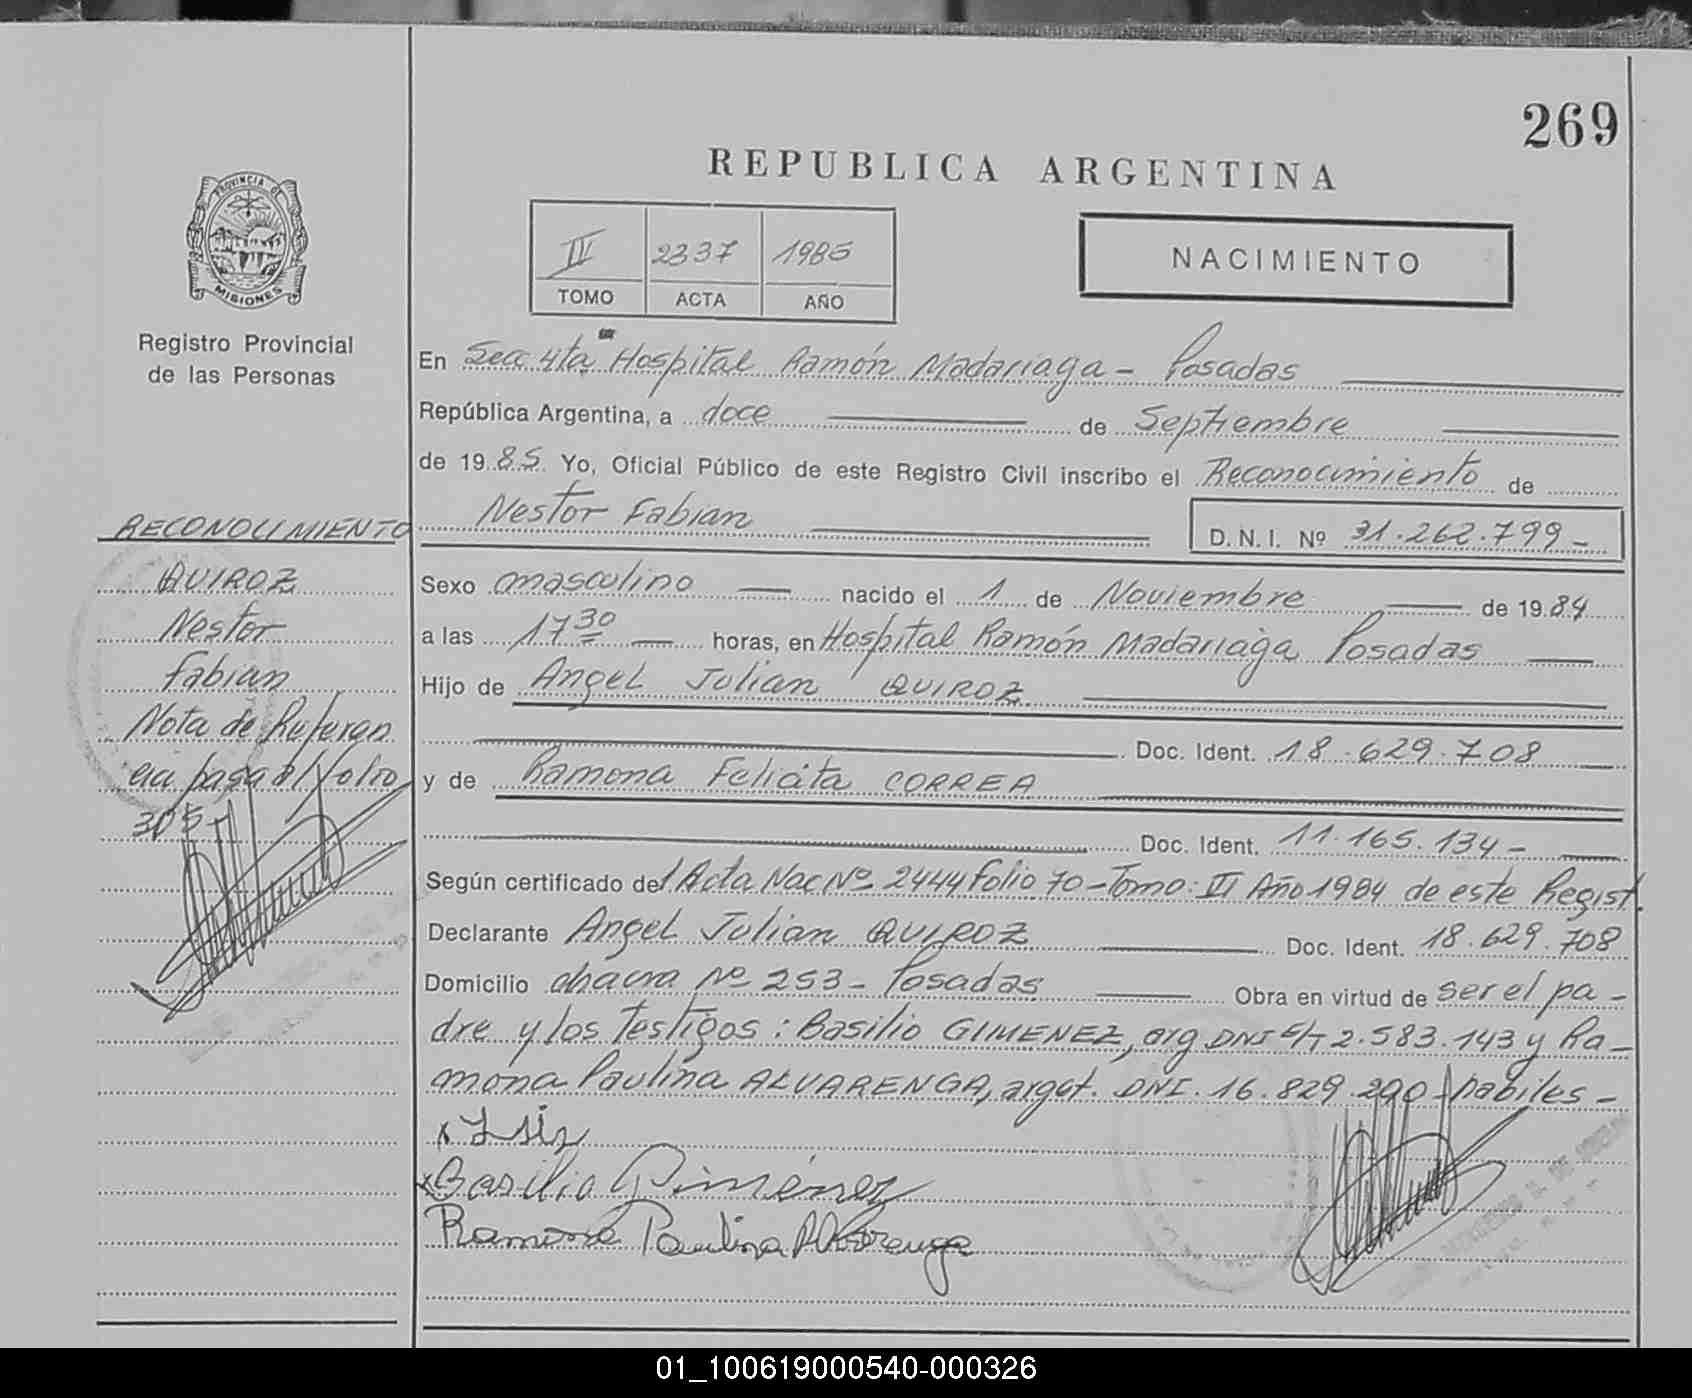 269
REPUBLICA ARGENTINA
PROVINCIA D
MISIONES
II 2337 1985
TOMO ACTA AÑO
NACIMIENTO
Registro Provincial
de las Personas
En Secc 4ta Hospital Ramón Madariaga - Posadas
República Argentina, a doce de Septiembre
de 1985 Yo, Oficial Público de este Registro Civil inscribo el Reconocimiento de
Nestor Fabian D.N.I. Nº 31.262.799-
RECONOCIMIENTO
QUIROZ
Nestor
Fabian
Nota de Referen
cia pasa al folio
305-
Sexo masculino nacido el 1 de Noviembre de 1984
a las 17 30 horas, en Hospital Ramón Madariaga Posadas
Hijo de Angel Julian QUIROZ
Doc. Ident. 18.629.708
y de Ramona Felicita CORREA
Doc. Ident. 11.165.134-
Según certificado del Acta Nac Nº 2444 Folio 70-Tomo: III Año 1984 de este Regist.
Declarante Angel Julian QUIROZ Doc. Ident. 18.629.708
Domicilio chacra Nº 253- Posadas Obra en virtud de ser el pa-
dre y los testigos: Basilio GIMENEZ, arg DNI 2.583.143 y Ra-
mona Paulina ALVARENGA, argt. DNI. 16.829.290 - habiles -
Basilio Giménez
Ramona Paulina Alvarenga
01_100619000540-000326